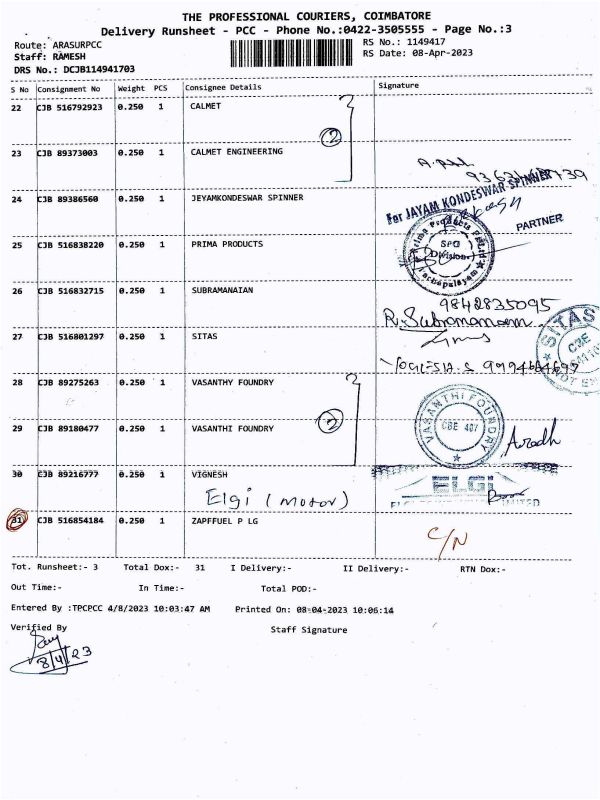 THE PROFESSIONAL COURIERS, COIMBATORE
Delivery Runsheet - PCC - Phone No.:0422-3505555 - Page No.:3
Route: ARASURPCC RS No.: 1149417
Staff: RAMESH RS Date: 08-Apr-2023
DRS No.: DCJB114941703
S No Consignment No Weight PCS Consignee Details Signature
22 CJB 516792923 0.250 1 CALMET
2
23 CJB 89373003 0.250 1 CALMET ENGINEERING
24 CJB 89386560 0.250 1 JEYAMKONDESWAR SPINNER
For JAYAM KONDESWAR SPINNER
PARTNER
25 CJB 516838220 0.250 1 PRIMA PRODUCTS
SPG
Division
26 CJB 516832715 0.250 1 SUBRAMANAIAN
9842835095
R. Subramaniam
27 CJB 516801297 0.250 1 SITAS
SITAS
CBE
28 CJB 89275263 0.250 1 VASANTHY FOUNDRY
VASANTHI FOUNDRY
CBE 407
29 CJB 89180477 0.250 1 VASANTHY FOUNDRY
2
30 CJB 89216777 0.250 1 VIGNESH
Elgi (motor)
ELGI
31 CJB 516854184 0.250 1 ZAPFFUEL P LG
C/N
Tot. Runsheet:- 3 Total Dox:- 31 I Delivery:- II Delivery:- RTN Dox:-
Out Time:- In Time:- Total POD:-
Entered By :TPCPCC 4/8/2023 10:03:47 AM Printed On: 08-04-2023 10:06:14
Verified By Staff Signature
8/4/23